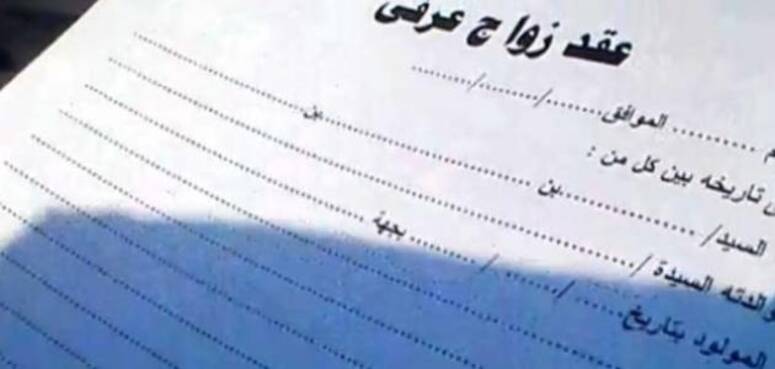 عقد زواج عرفى
الموافق ........../........../..........
تاريخه بين كل من :
السيد/ .............................. بن .............................. بن ..............................
والدته السيدة / ..............................
المولود بتاريخ ......../......../........ بجهة ..............................